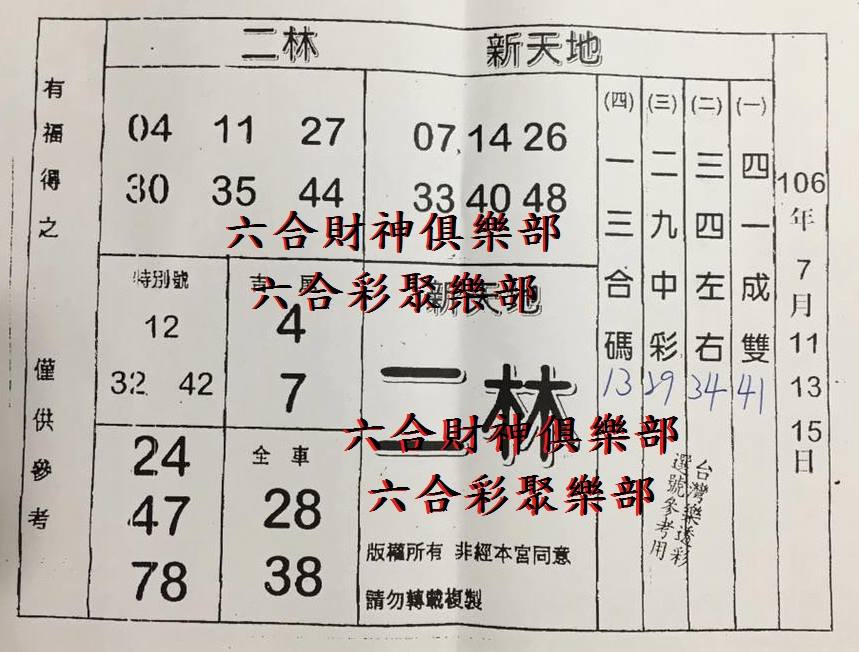 二林 新天地
106年7月11 13 15日
(一)四一成雙 41
(二)三四左右 34
(三)二九中彩 29
(四)一三合碼 13
台灣樂透彩
選號參考用
07 14 26
33 40 48
04 11 27
30 35 44
有福得之 僅供參考
六合財神俱樂部
六合彩聚樂部
特別號
12
32 42
4
7
新天地
二林
六合財神俱樂部
六合彩聚樂部
24
47
78
全車
28
38
版權所有 非經本宮同意
請勿轉載複製